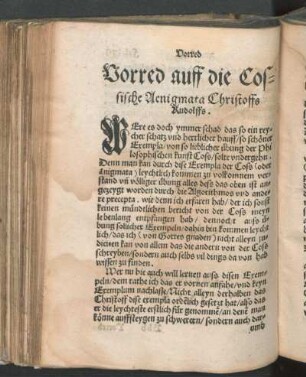 Vorred
Vorred auff die Cos-
sische Aenigmata Christoffs
Rudolffs.
WEre es doch ymmer schad das so ein rey-
cher schatz vnd herrlicher hauff/ so schöner
Exempla/ von so lieblicher übung der Phi
losophischen kunst Coss/ solte vndergehn.
Denn man kan durch dise Exempla der Coss (oder
ænigmata) leychtlich kommen zu volkommem ver-
stand vñ völliger übung alles dess das oben ist an-
gezeygt worden durch die Algorithmos vnd ander
e precepta. wie denn ich erfaren hab/ der ich sonst
keinen mündtlichen bericht von der Coss meyn
lebenlang empfangen hab/ dennocht auss v-
bung solicher Exempeln/ dahin bin kommen leycht
lich/ das ich (von Gottes gnaden) nicht alleyn zu
dienen kan von allem das die andern von der Coss
schreyben/ sondern auch selbs vil dings da von hab
wissen zu finden.
Wer nu die auch will lernen auss disen Exem-
peln/ dem rathe ich das er vornen anfahe/ vnd keyn
Exemplum nachlasse/ Nicht alleyn derhalben das
Christoff dise exempla ordẽlich gesetzt hat/ also das
er die leychteste erstlich für genommẽ/ an denẽ man
könne auffsteygen zu schwerern/ sondern auch dar-
umb